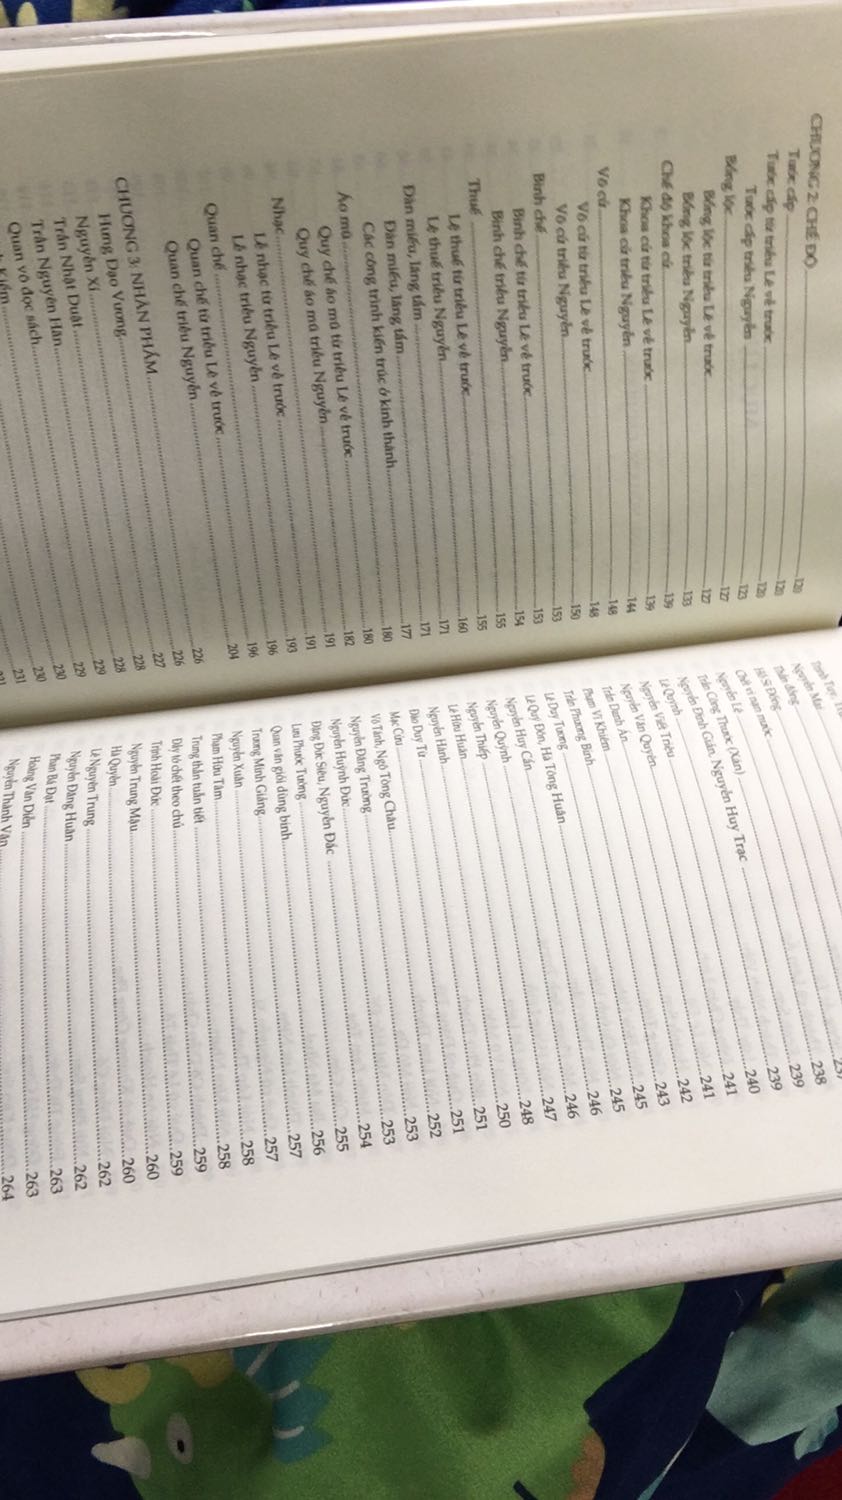 CHƯƠNG 2: CHẾ ĐỘ
Tước cấp 120
Tước cấp từ triều Lê về trước 120
Tước cấp triều Nguyễn 123
Bổng lộc 127
Bổng lộc từ triều Lê về trước 127
Bổng lộc triều Nguyễn 133
Chế độ khoa cử 139
Khoa cử từ triều Lê về trước 139
Khoa cử triều Nguyễn 144
Võ cử 148
Võ cử từ triều Lê về trước 148
Võ cử triều Nguyễn 150
Binh chế 153
Binh chế từ triều Lê về trước 153
Binh chế triều Nguyễn 154
Thuế 155
Lệ thuế từ triều Lê về trước 155
Lệ thuế triều Nguyễn 160
Đàn miếu, lăng tẩm 171
Đàn miếu, lăng tẩm 171
Các công trình kiến trúc ở kinh thành 177
Áo mũ 180
Quy chế áo mũ từ triều Lê về trước 180
Quy chế áo mũ triều Nguyễn 182
Nhạc 191
Lễ nhạc từ triều Lê về trước 191
Lễ nhạc triều Nguyễn 193
Quan chế 196
Quan chế từ triều Lê về trước 196
Quan chế triều Nguyễn 204
CHƯƠNG 3: NHÂN PHẨM 226
Hưng Đạo Vương 226
Nguyễn Xí 227
Trần Nhật Duật 228
Trần Nguyên Hãn 228
Quan võ đọc sách 229
Kiếm
229
230
230
231
Nguyễn Mại 238
Thần đồng 239
Hồ Sĩ Đống 239
Chết vì nạn nước 240
Nguyễn Lệ 241
Trần Công Thước (Xán) 241
Nguyễn Đình Giản, Nguyễn Huy Trạc 242
Lê Quýnh 243
Nguyễn Viết Triệu 245
Nguyễn Văn Quyên 245
Trần Danh Án 246
Phạm Vĩ Khiêm 246
Trần Phương Bính 247
Lê Duy Tương 248
Lê Quý Đôn, Hà Tông Huân 250
Nguyễn Huy Cẩn 251
Nguyễn Quỳnh 251
Nguyễn Thiếp 252
Lê Hữu Huân 253
Nguyễn Hành 253
Đào Duy Từ 254
Mạc Cửu 255
Võ Tánh, Ngô Tòng Châu 256
Nguyễn Đăng Trường 257
Nguyễn Huỳnh Đức 257
Đặng Đức Siêu, Nguyễn Đắc 258
Lưu Phước Tường 258
Quan văn giỏi dùng binh 259
Trương Minh Giảng 259
Nguyễn Xuân 260
Phạm Hữu Tâm 260
Trung thần tuẫn tiết 262
Đầy tớ chết theo chủ 262
Trịnh Hoài Đức 263
Nguyễn Trung Mậu 263
Hà Quyền 264
Lê Nguyên Trung
Nguyễn Đăng Huân
Phan Bá Đạt
Hoàng Văn Diễn
Nguyễn Thành Vân